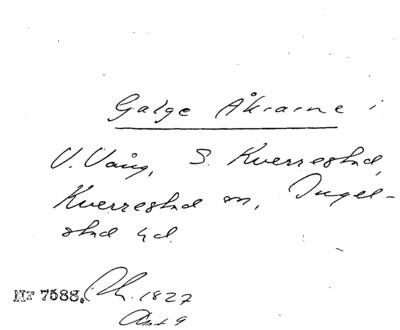 Galge Åkrarne i
V. Vång, S. Kverrestad,
Kverrestad sn, Ingel-
stad hd.
Nr 7588. Ak. 1827
Akt 9